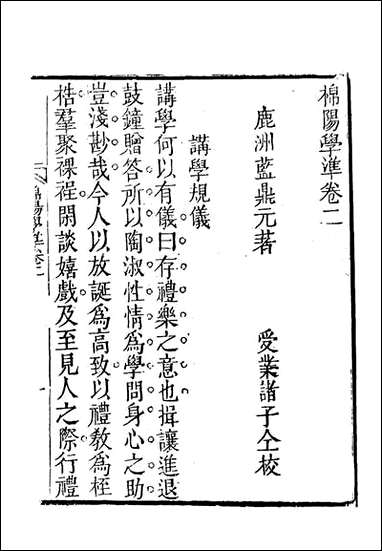 棉陽學準卷二
鹿洲藍鼎元著　受業諸子仝校
講學規儀
講學何以有儀曰存禮樂之意也揖讓進退
鼓鐘贈答所以陶淑性情為學問身心之助
豈淺尠哉今人以放誕為高致以禮教為桎
梏羣聚裸裎閑談嬉戲及至見人之際行禮
棉陽學準 卷二 一